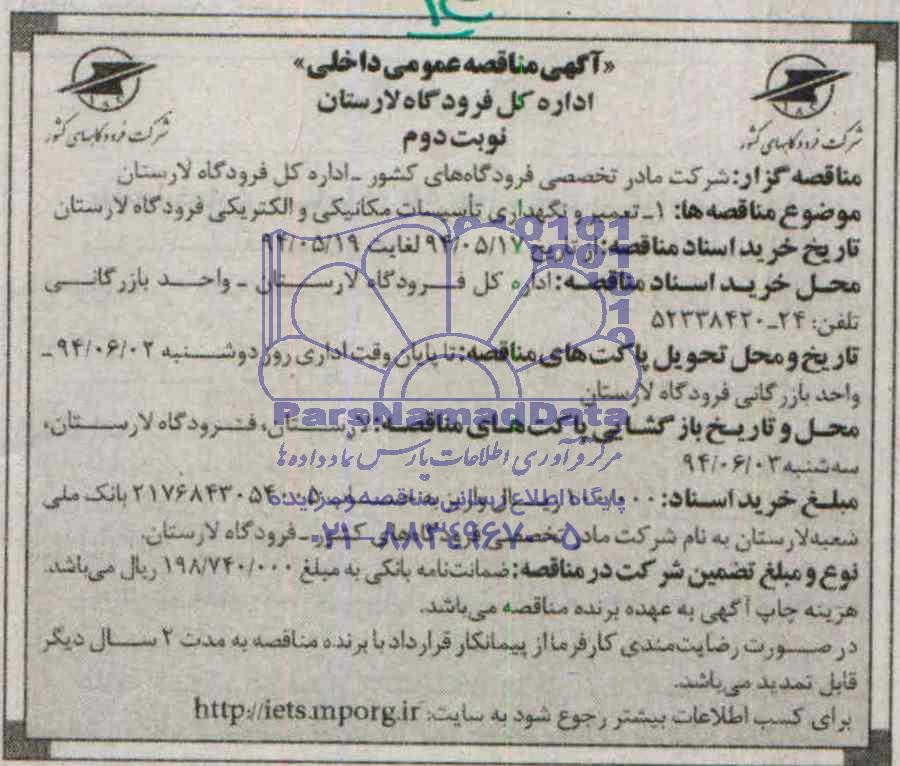 «آگهی مناقصه عمومی داخلی»
اداره کل فرودگاه لارستان
نوبت دوم
شرکت فرودگاههای کشور
شرکت فرودگاههای کشور
مناقصه گزار: شرکت مادر تخصصی فرودگاه‌های کشور ـ اداره کل فرودگاه لارستان
موضوع مناقصه ها: ۱ـ تعمیر و نگهداری تأسیسات مکانیکی و الکتریکی فرودگاه لارستان
تاریخ خرید اسناد مناقصه: از تاریخ ۹۴/۰۵/۱۷ لغایت ۹۴/۰۵/۱۹
محل خرید اسناد مناقصه: اداره کل فرودگاه لارستان ـ واحد بازرگانی
تلفن: ۲۴ـ۵۲۳۳۸۴۲۰
تاریخ و محل تحویل پاکت های مناقصه: تا پایان وقت اداری روز دوشنبه ۹۴/۰۶/۰۲ ـ
واحد بازرگانی فرودگاه لارستان
محل و تاریخ بازگشایی پاکت های مناقصه: لارستان، فرودگاه لارستان،
سه‌شنبه ۹۴/۰۶/۰۳
مبلغ خرید اسناد: ریال واریز به حساب ۲۱۷۶۸۴۳۰۵۴۰۰۵ بانک ملی
شعبه لارستان به نام شرکت مادر تخصصی فرودگاه‌های کشور ـ فرودگاه لارستان.
نوع و مبلغ تضمین شرکت در مناقصه: ضمانت‌نامه بانکی به مبلغ ۱۹۸/۷۴۰/۰۰۰ ریال می‌باشد.
هزینه چاپ آگهی به عهده برنده مناقصه می‌باشد.
در صورت رضایت‌مندی کارفرما از پیمانکار قرارداد با برنده مناقصه به مدت ۲ سال دیگر
قابل تمدید می‌باشد.
برای کسب اطلاعات بیشتر رجوع شود به سایت: http://iets.mporg.ir
ParsNamadData
مرکز فرآوری اطلاعات پارس نماد داده ها
پایگاه اطلاع رسانی مناقصه و مزایده
۰۲۱-۸۸۳۴۹۶۷۰-۵